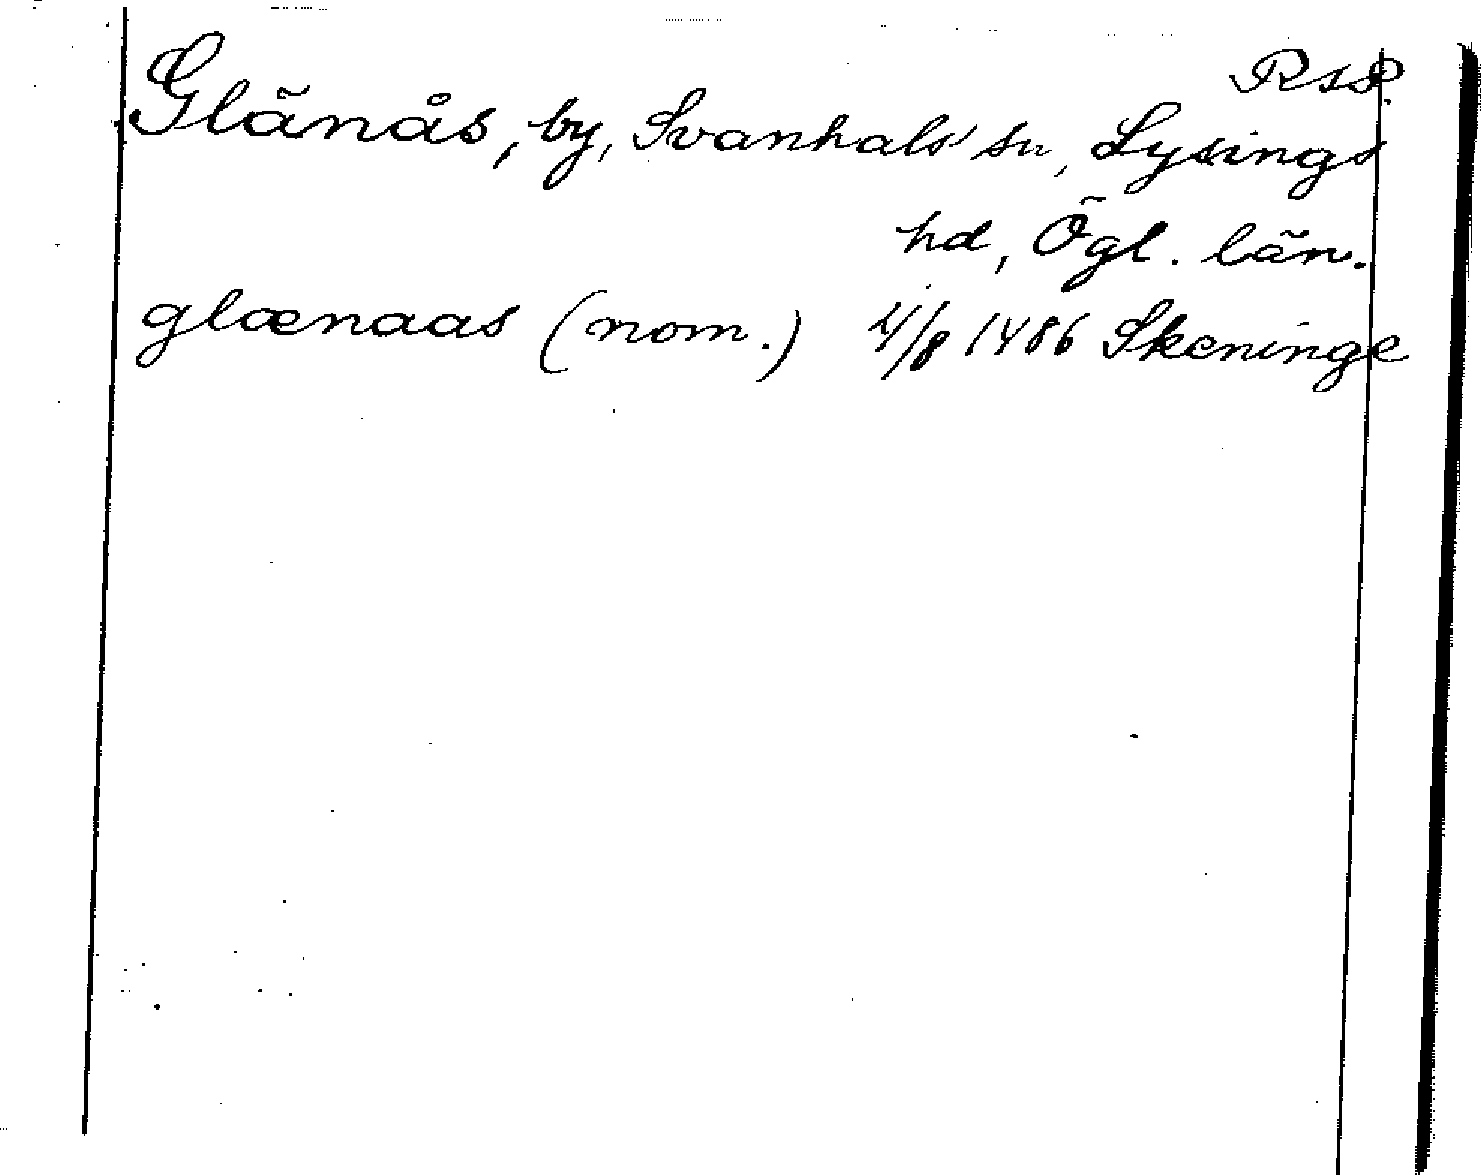 Rsp.
Glänås, by, Svanhals sn, Lysings
hd, Ögl. län.
glænaas (nom.) 4/8 1486 Skeninge